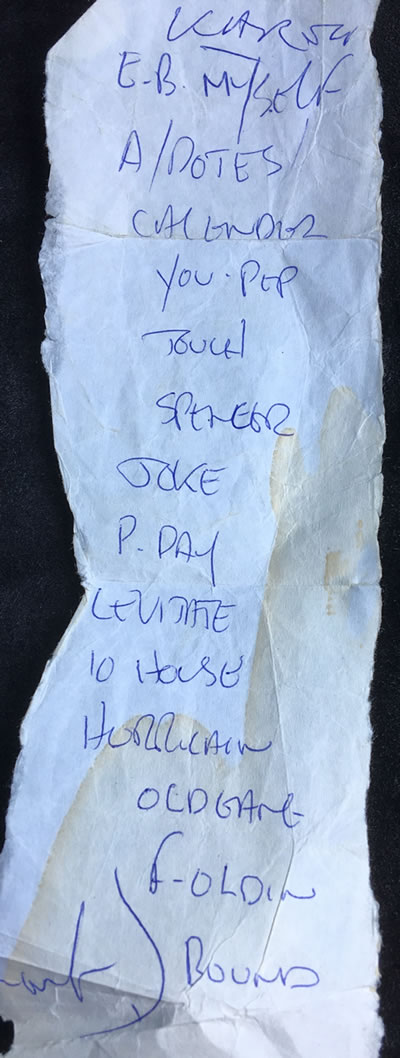 E.B. MYSELF
A/DOTES/
CALENDER
YOU-PEP
TOUCH
SPENCER
JOKE
P. DAY
LEVITATE
10 HOUSE
HURRICAIN
OLDGANG
F-OLDIN
BOUND